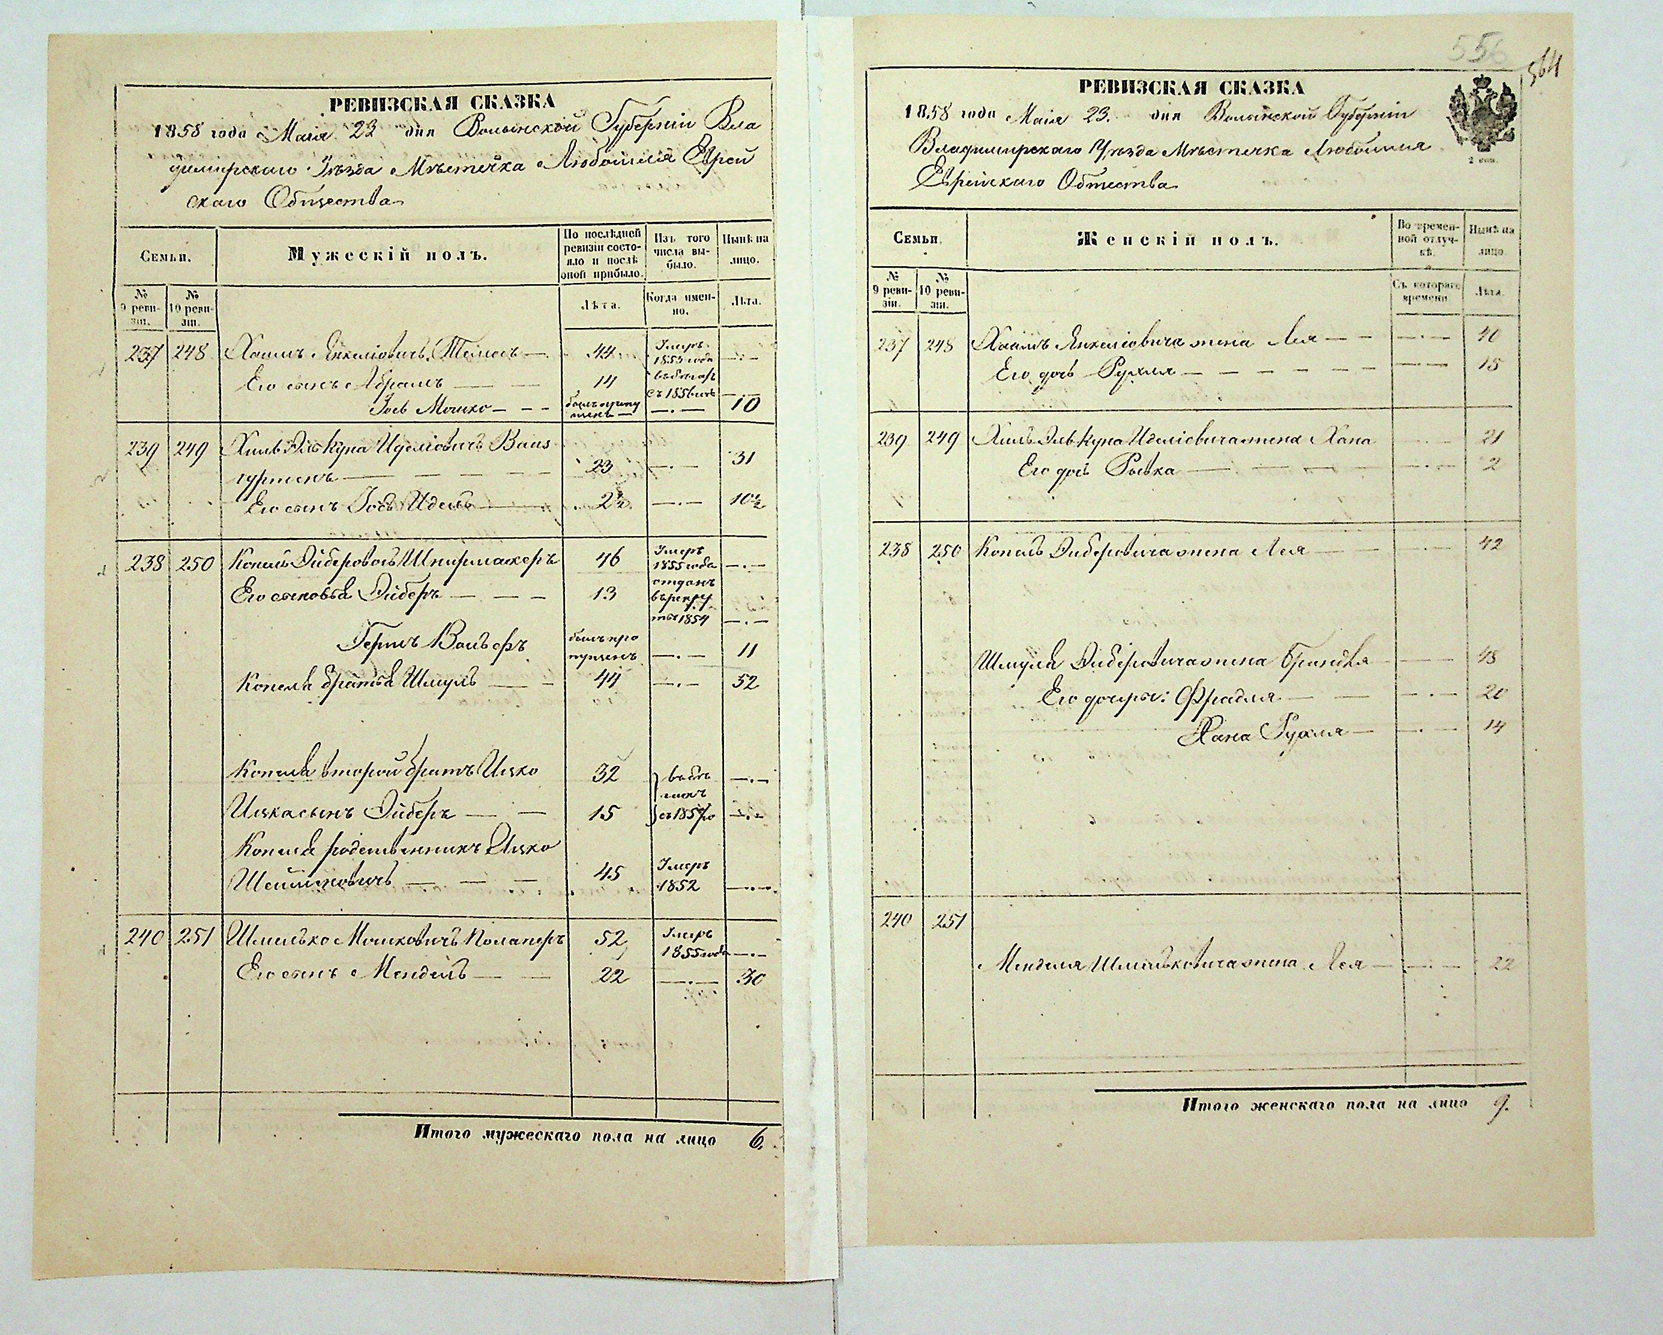 РЕВИЗСКАЯ СКАЗКА
1858 года Маія 23 дня Волынской Губерніи Вла
димирскаго Уѣзда Мѣстечка Любомля Еврей
скаго Общества
Семьи.
Мужескій полъ.
По послѣдней ревизіи состояло и послѣ оной прибыло.
Изъ того числа выбыло.
Нынѣ на лицо.
№ 9 ревизіи.
№ 10 ревизіи.
Лѣта.
Когда именно.
Лѣта.
237 248 Хаимъ Янкеліовичъ 44 Умеръ 1853 года —·—
Его сынъ Абрамъ — — 14
Іось Мошко — - - былъ пропущенъ — —·— 10
239 249 Хиль Элькуна Иделіовичъ Ваис
гуртенъ — — — 23 —·— 31
Его сынъ Іось Идель 2½ —·— 10½
238 250 Копель Эйберовичъ Шпирмахеръ 46 Умеръ 1855 года —·—
Его сыновья Эйберъ — — — 13 отданъ въ рекруты 1854 —·—
Гершъ Вольфъ былъ пропущенъ —·— 11
Копеля братья Шмуль — — 44 —·— 52
Копеля второй братъ Ицко 32 —·—
Ицка сынъ Эйберъ — — 15 съ 1857 го —·—
Копеля родственникъ Ицко
— — — 45 Умеръ 1852 —·—
240 251 Шмилько Мошковичъ 52 Умеръ 1855 года —·—
Его сынъ Мендель — — 22 —·— 30
Итого мужескаго пола на лицо 6.
556
564
РЕВИЗСКАЯ СКАЗКА
1858 года Маія 23. дня Волынской Губерніи
Владимирскаго Уѣзда Мѣстечка Любомля
Еврейскаго Общества
2 коп.
Семьи.
Женскій полъ.
Во временной отлучкѣ.
Нынѣ на лицо.
№ 9 ревизіи.
№ 10 ревизіи.
Съ котораго времени.
Лѣта.
237 248 Хаима Янкеліовича жена Лея — — —·— 40
Его дочь Рухля — — — — — — — 15
239 249 Хиль Элькуна Иделіовича жена Хана —·— 21
Его дочь Рывка — — — —·— 2
238 250 Копеля Эйберовича жена Лея — — —·— 42
Шмуля Эйберовича жена Брандля — 48
Его дочери: Фрадля — — —·— 20
Хана Рухля — —·— 14
240 251
Менделя Шмильковича жена Лея — —·— 22
Итого женскаго пола на лицо 9.